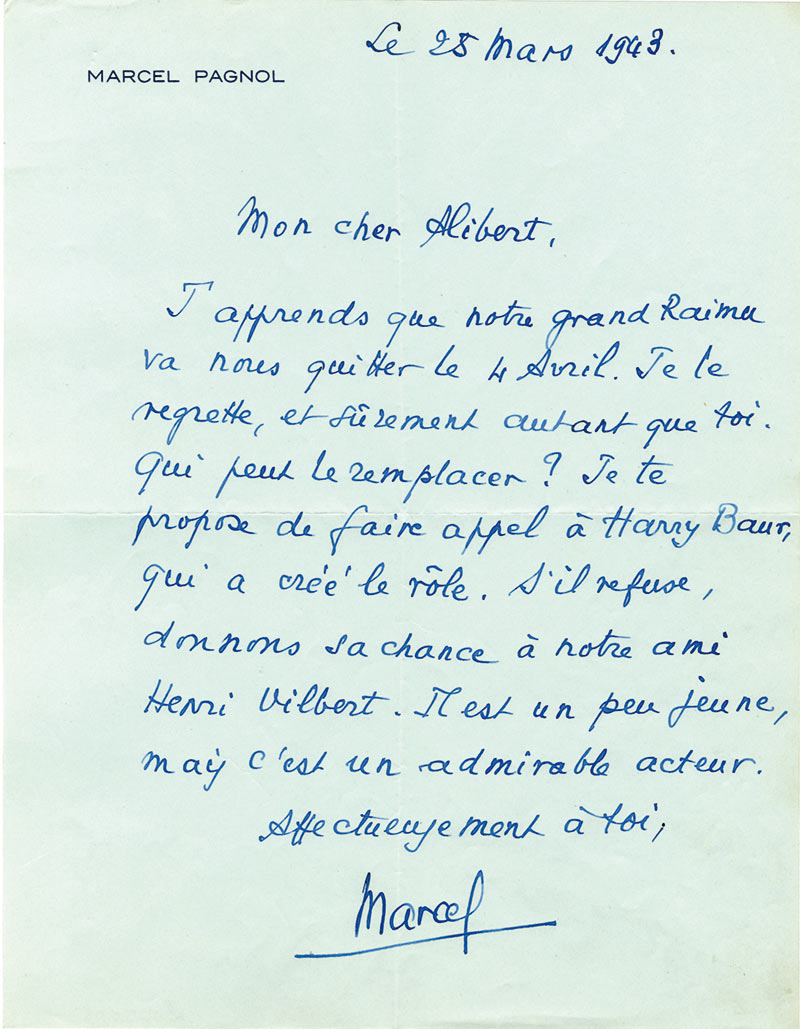 Le 25 Mars 1943.
MARCEL PAGNOL
Mon cher Alibert,
J'apprends que notre grand Raimu
va nous quitter le 4 Avril. Je le
regrette, et sûrement autant que toi.
Qui peut le remplacer ? Je te
propose de faire appel à Harry Baur,
qui a créé le rôle. S'il refuse,
donnons sa chance à notre ami
Henri Vilbert. Il est un peu jeune,
mais c'est un admirable acteur.
Affectueusement à toi,
Marcel